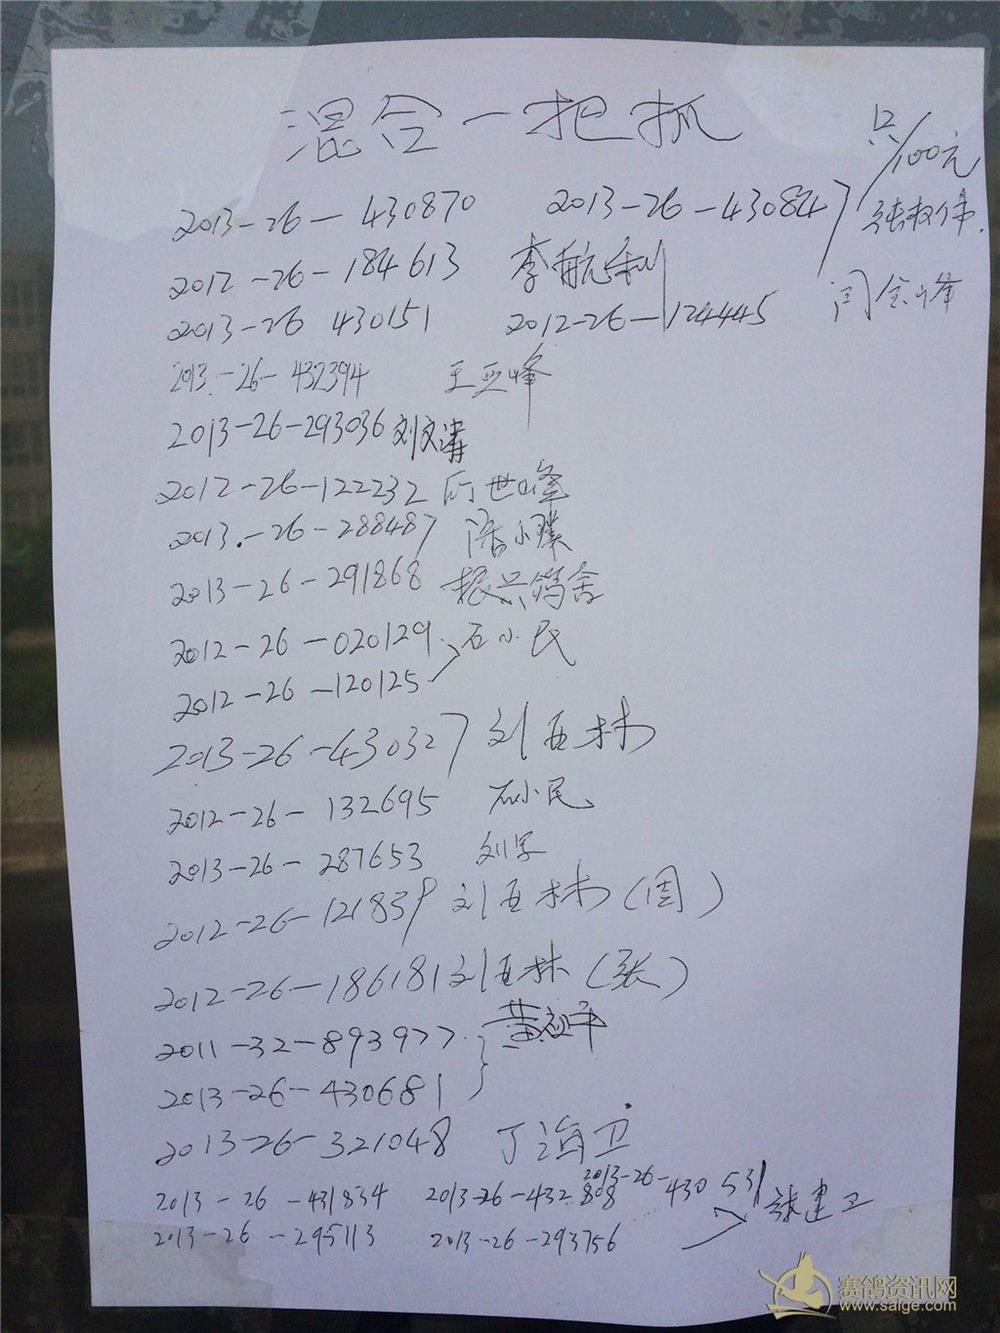 混合一把抓
只/100元
2013-26-430870 2013-26-430847 张权伟
2012-26-184613 李航利 闫会峰
2013-26 430151 2012-26-124445
2013-26-432394 王亚峰
2013-26-293036 刘文清
2012-26-122232 世峰
2013-26-288487 陈小璞
2013-26-291868 振兴鸽舍
2012-26-020129 石小民
2012-26-120125
2013-26-430327 刘亚林
2012-26-132695 石小民
2013-26-287653 刘军
2012-26-121839 刘亚林(周)
2012-26-186181 刘亚林(张)
2011-32-893977 黄平
2013-26-430681
2013-26-321048 丁海卫
2013-26-431834 2013-26-432808 2013-26-430531 张建卫
2013-26-295113 2013-26-293756
赛鸽资讯网
www.saige.com